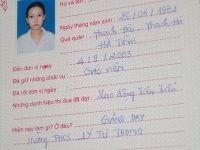 Họ và tên:
Ngày tháng năm sinh: 20/05/1981
Quê quán: Thạch Đài - Thạch Hà
HÀ TĨNH
Đến đơn vị ngày 4/9/2003
Đã giữ những chức vụ Giáo viên
Đã rời đơn vị ngày
Những danh hiệu thi đua đã đạt: Lao động tiên tiến
Hiện nay làm gì? Ở đâu? GIẢNG DẠY
Trường THCS LÝ TỰ TRỌNG